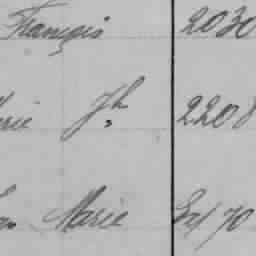 François 2030
arie Jh 2208
Marie 70